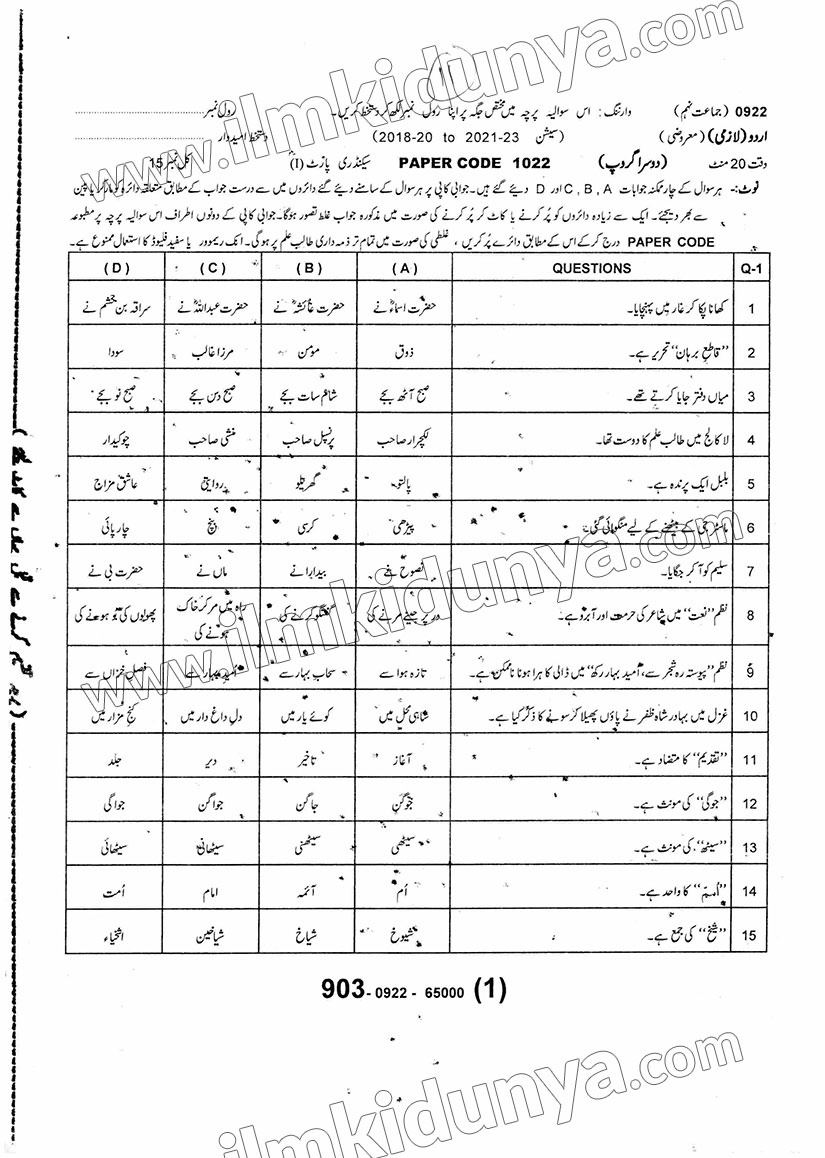 www.ilmkidunya.com
11
0922 (جماعت نہم) وارننگ: اس سوالیہ پرچہ میں مختص جگہ پر اپنا رول نمبر لکھ کر دستخط کریں۔ رول نمبر
اردو (لازمی) (معروضی) (سیشن 2018-20 to 2021-23) دستخط امیدوار
وقت 20 منٹ (دوسرا گروپ) PAPER CODE 1022 سیکنڈری پارٹ (I) کل نمبر 15
نوٹ:- ہر سوال کے چار ممکنہ جوابات C , B , A اور D دیئے گئے ہیں۔ جوابی کاپی پر ہر سوال کے سامنے دیئے گئے دائروں میں سے درست جواب کے مطابق متعلقہ دائرہ کو مارکر یا پین
سے بھر دیجیئے۔ ایک سے زیادہ دائروں کو پُر کرنے یا کاٹ کر پُر کرنے کی صورت میں مذکورہ جواب غلط تصور ہوگا۔ جوابی کاپی کے دونوں اطراف اس سوالیہ پرچہ پر مطبوعہ
PAPER CODE درج کر کے اس کے مطابق دائرے پُر کریں ، غلطی کی صورت میں تمام تر ذمہ داری طالب علم پر ہوگی۔ انک ریموور یا سفید فلیوڈ کا استعمال ممنوع ہے۔
Q-1 QUESTIONS (A) (B) (C) (D)
1 کھانا پکا کر غار میں پہنچایا۔ حضرت اسماءؓ نے حضرت عائشہؓ نے حضرت عبداللہؓ نے سراقہ بن جشم نے
2 "قاطع برہان" تحریر ہے۔ ذوق مومن مرزا غالب سودا
3 میاں دفتر جایا کرتے تھے۔ صبح آٹھ بجے شام سات بجے صبح دس بجے صبح نو بجے
4 لا کالج میں طالب علم کا دوست تھا۔ لکچرار صاحب پرنسپل صاحب منشی صاحب چوکیدار
5 بلبل ایک پرندہ ہے۔ پالتو گھریلو روایتی عاشق مزاج
6 ماسٹر جی کے بیٹھنے کے لیے منگوائی گئی۔ پیڑھی کرسی بنچ چارپائی
7 سلیم کو آ کر جگایا۔ نصوح نے بیدارا نے ماں نے حضرت بی نے
8 نظم "نعت" میں شاعر کی حرمت اور آبرو ہے۔ در پر جینے مرنے کی گفتگو کرنے کی راہ میں مر کر خاک ہونے کی پھولوں کی بو ہونے کی
9 نظم "پیوستہ رہ شجر سے، اُمید بہار رکھ" میں ڈالی کا ہرا ہونا ناممکن ہے۔ تازہ ہوا سے سحاب بہار سے اُمید بہار سے فصل خزاں سے
10 غزل میں بہادر شاہ ظفر نے پاؤں پھیلا کر سونے کا ذکر کیا ہے۔ شاہی محل میں کوئے یار میں دل داغ دار میں کنج مزار میں
11 "تقدیم" کا متضاد ہے۔ آغاز تاخیر دیر جلد
12 "جوگی" کی مونث ہے۔ جوگن جاگن جواگن جواگی
13 "سیٹھ" کی مونث ہے۔ سیٹھی سیٹھنی سیٹھانی سیٹھائی
14 "اُمم" کا واحد ہے۔ اُم آئمہ امام اُمت
15 "شیخ" کی جمع ہے۔ شیوخ شیاخ شیاخین اشخیاء
903-0922 - 65000 (1)
www.ilmkidunya.com
www.ilmkidunya.com
www.ilmkidunya.com